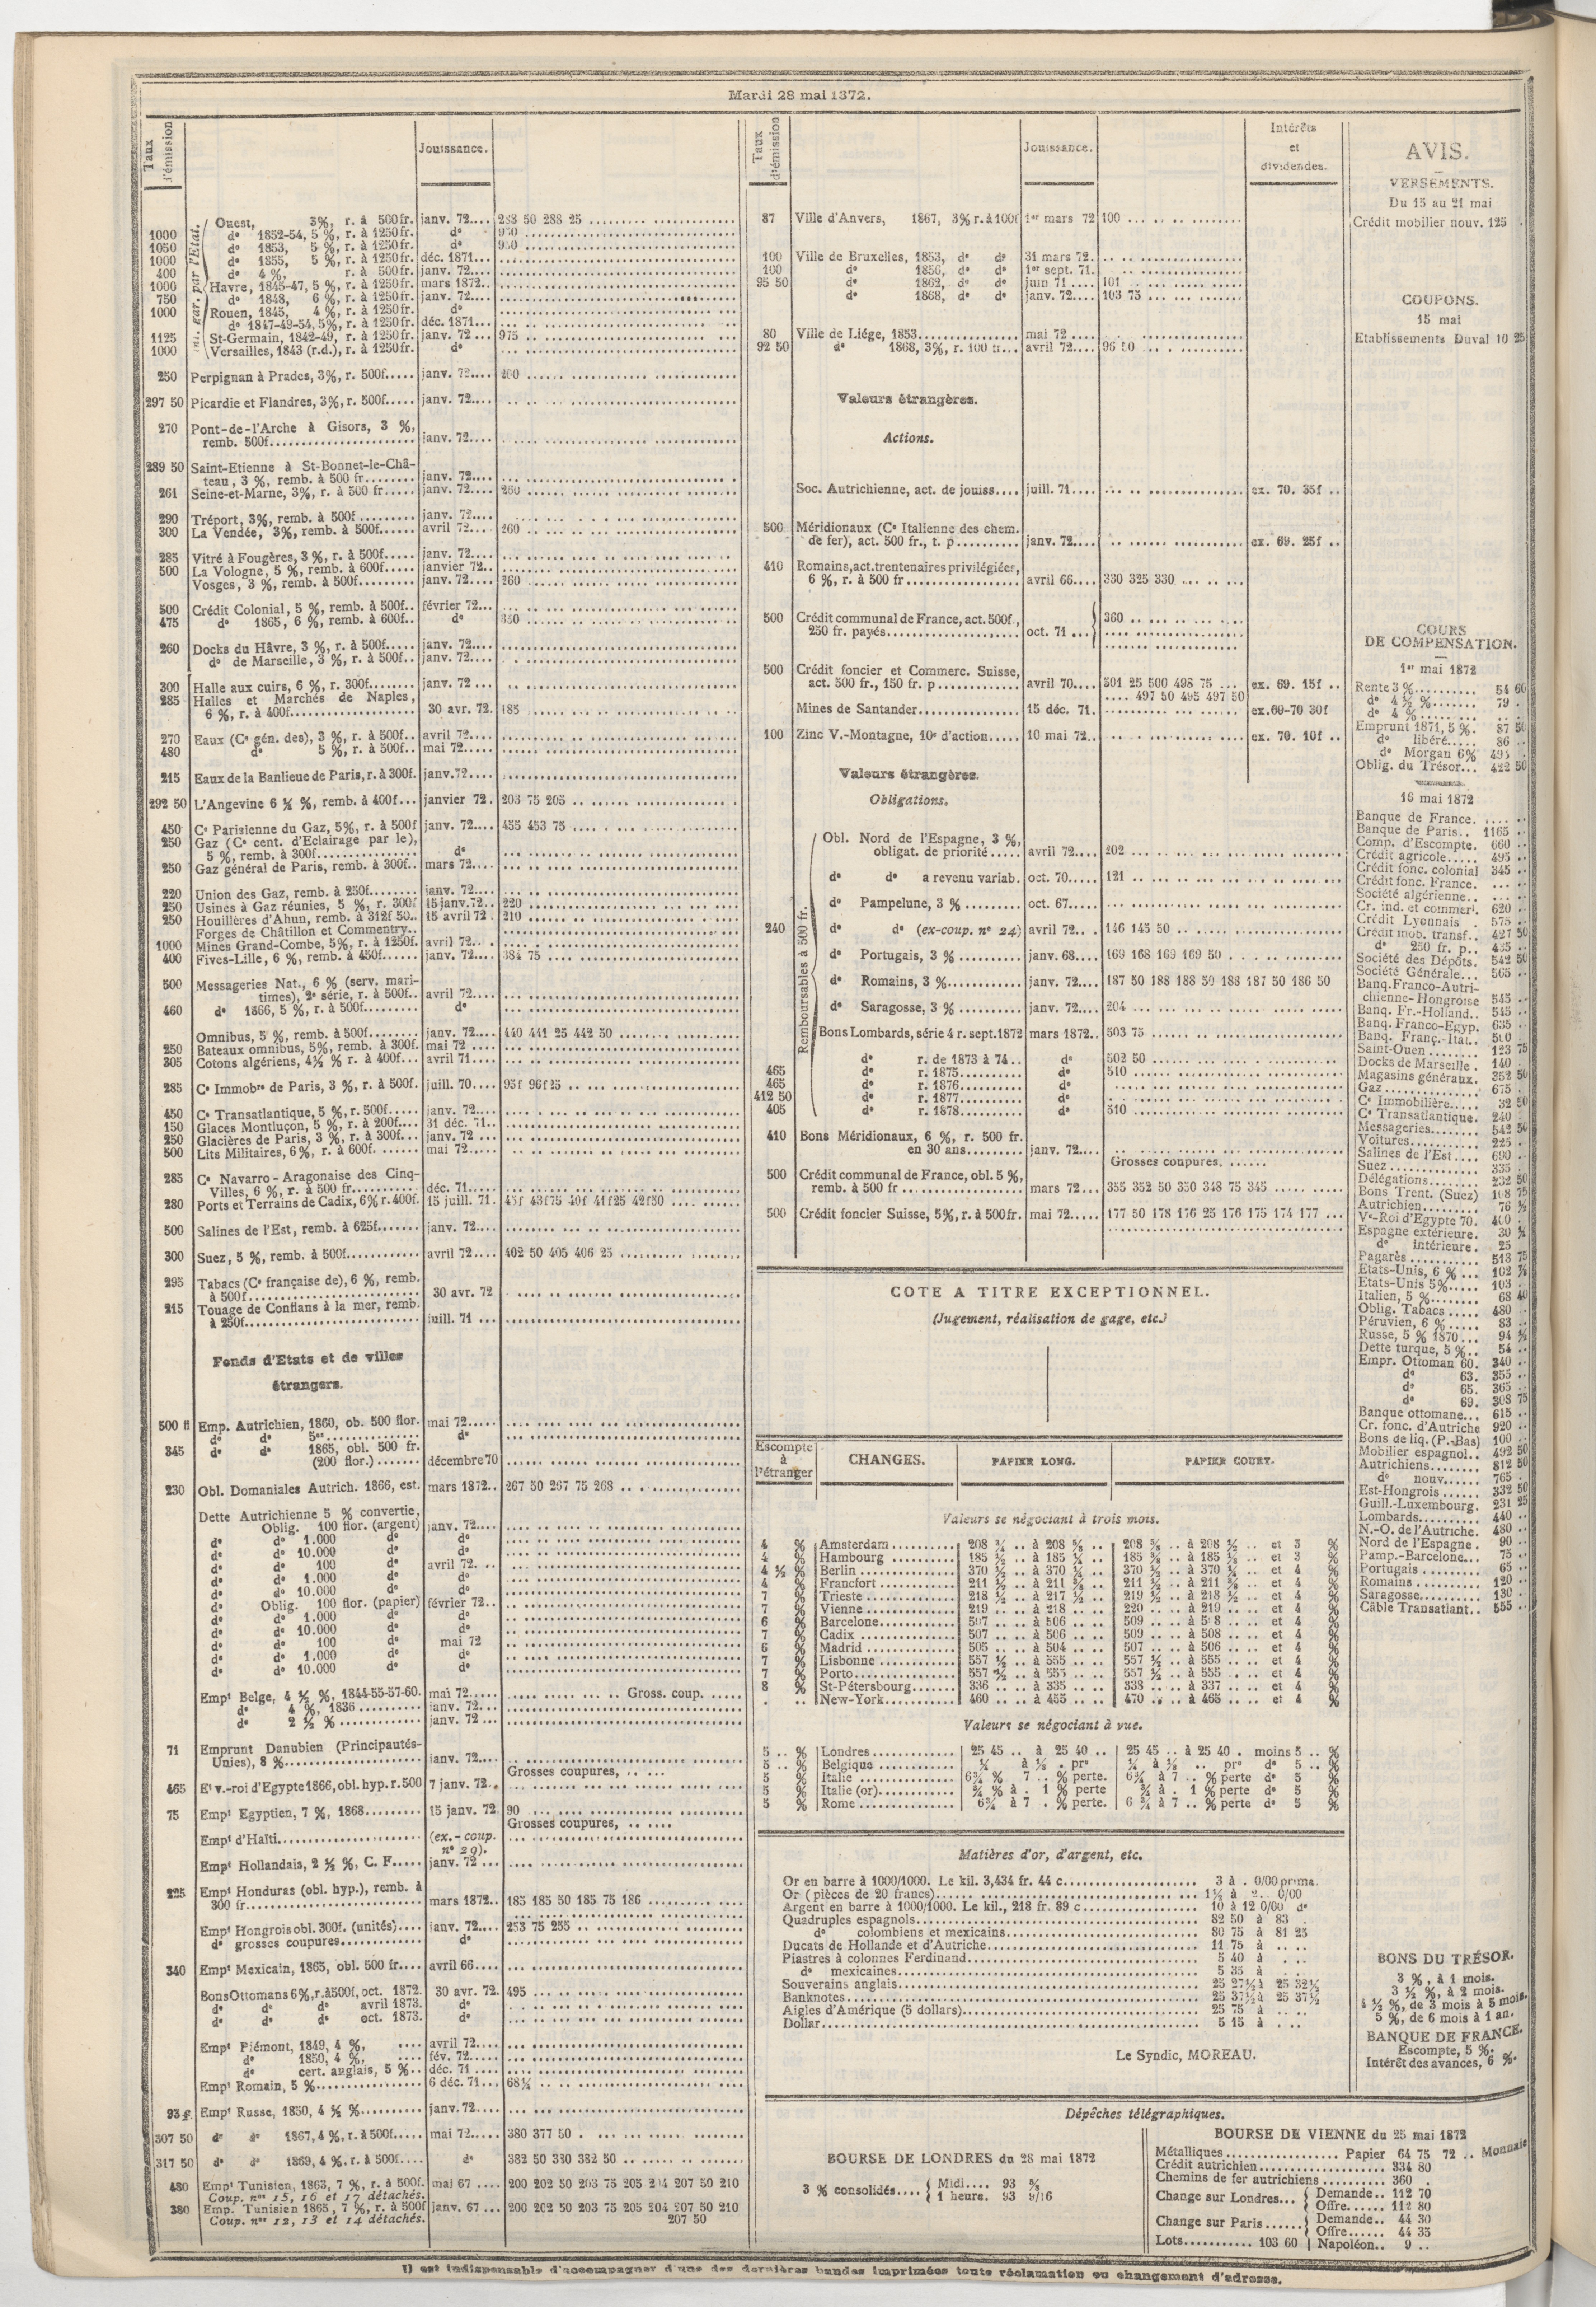 Mardi 28 mai 1872.
Taux d'émission
Jouissance.
Ouest, 3%, r. à 500fr. janv. 72.... 288 50 288 25
1000 dº 1852-54, 5 %, r. à 1250fr. dº
1050 dº 1853, 5 %, r. à 1250fr. dº
1000 dº 1855, 5 %, r. à 1250fr. déc. 1871...
400 dº 4 %, r. à 500fr. janv. 72....
1000 Havre, 1845-47, 5 %, r. à 1250fr. mars 1872..
750 dº 1848, 6 %, r. à 1250fr. janv. 72....
1000 Rouen, 1845, 4 %, r. à 1250fr. dº
dº 1847-49-54, 5%, r. à 1250fr. déc. 1871...
1125 St-Germain, 1842-49, r. à 1250fr. janv. 72 ... 975
1000 Versailles, 1843 (r.d.), r. à 1250fr. dº
250 Perpignan à Prades, 3%, r. 500f..... janv. 72.... 260
297 50 Picardie et Flandres, 3%, r. 500f..... janv. 72....
270 Pont-de-l'Arche à Gisors, 3 %,
remb. 500f. janv. 72....
289 50 Saint-Etienne à St-Bonnet-le-Châ-
teau, 3 %, remb. à 500 fr. janv. 72....
261 Seine-et-Marne, 3%, r. à 500 fr..... janv. 72.... 260
290 Tréport, 3%, remb. à 500f janv. 72....
300 La Vendée, 3%, remb. à 500f...... avril 72.... 260
285 Vitré à Fougères, 3 %, r. à 500f..... janv. 72....
500 La Vologne, 5 %, remb. à 600f..... janvier 72..
Vosges, 3 %, remb. à 500f. janv. 72.... 260
500 Crédit Colonial, 5 %, remb. à 500f.. février 72...
475 dº 1865, 6 %, remb. à 600f.. dº
260 Docks du Hâvre, 3 %, r. à 500f..... janv. 72....
dº de Marseille, 3 %, r. à 500f.. janv. 72....
300 Halle aux cuirs, 6 %, r. 300f. janv. 72 ...
285 Halles et Marchés de Naples,
6 %, r. à 400f. 30 avr. 72. 185
270 Eaux (Cº gén. des), 3 %, r. à 500f.. avril 72....
480 dº 5 %, r. à 500f.. mai 72.....
215 Eaux de la Banlieue de Paris, r. à 300f. janv. 72....
292 50 L'Angevine 6 ½ %, remb. à 400f... janvier 72. 203 75 205
450 Cº Parisienne du Gaz, 5%, r. à 500f janv. 72.... 455 453 75
250 Gaz (Cº cent. d'Eclairage par le),
5 %, remb. à 300f. dº
250 Gaz général de Paris, remb. à 300f.. mars 72....
220 Union des Gaz, remb. à 250f. janv. 72....
250 Usines à Gaz réunies, 5 %, r. 300f 15 janv. 72.. 220
250 Houillères d'Ahun, remb. à 312f 50.. 15 avril 72 . 210
Forges de Châtillon et Commentry..
1000 Mines Grand-Combe, 5%, r. à 1250f. avril 72..
400 Fives-Lille, 6 %, remb. à 450f. janv. 72.... 384 75
500 Messageries Nat., 6 % (serv. mari-
times), 2º série, r. à 500f.. avril 72....
460 dº 1866, 5 %, r. à 500f. dº
Omnibus, 5 %, remb. à 500f. janv. 72.... 440 441 25 442 50
250 Bateaux omnibus, 5%, remb. à 300f. mai 72 ....
305 Cotons algériens, 4½ % r. à 400f... avril 71....
285 Cº Immobre de Paris, 3 %, r. à 500f. juill. 70.... 95f 96f25
450 Cº Transatlantique, 5 %, r. 500f..... janv. 72....
150 Glaces Montluçon, 5 %, r. à 200f.... 31 déc. 71..
250 Glacières de Paris, 3 %, r. à 300f... janv. 72 ...
500 Lits Militaires, 6%, r. à 600f. mai 72.....
285 Cº Navarro-Aragonaise des Cinq-
Villes, 6 %, r. à 500 fr. déc. 71.....
280 Ports et Terrains de Cadix, 6% r. 400f. 15 juill. 71. 45f 43f75 40f 41f25 42f50
500 Salines de l'Est, remb. à 625f. janv. 72....
300 Suez, 5 %, remb. à 500f. avril 72.... 402 50 405 406 25
295 Tabacs (Cº française de), 6 %, remb.
à 500f. 30 avr. 72
215 Touage de Conflans à la mer, remb.
à 250f. juill. 71 ...
Fonds d'Etats et de villes
étrangers.
500 fl Emp. Autrichien, 1860, ob. 500 flor. mai 72.....
dº dº 5es dº
345 dº dº 1865, obl. 500 fr.
(200 flor.) décembre 70
230 Obl. Domaniales Autrich. 1866, est. mars 1872.. 267 50 267 75 268
Dette Autrichienne 5 % convertie,
Oblig. 100 flor. (argent) janv. 72....
dº dº 1.000 dº dº
dº dº 10.000 dº dº
dº dº 100 dº avril 72. ..
dº dº 1.000 dº dº
dº dº 10.000 dº dº
dº Oblig. 100 flor. (papier) février 72..
dº dº 1.000 dº dº
dº dº 10.000 dº dº
dº dº 100 dº mai 72
dº dº 1.000 dº dº
dº dº 10.000 dº dº
Empt Belge, 4 ½ %, 1844-55-57-60. mai 72..... Gross. coup.
dº 4 %, 1836 janv. 72...
dº 2 ½ % janv. 72 ...
71 Emprunt Danubien (Principautés-
Unies), 8 % janv. 72....
Grosses coupures,
465 Et v.-roi d'Egypte 1866, obl. hyp. r. 500 7 janv. 72..
75 Empt Egyptien, 7 %, 1868. 15 janv. 72. 90
Grosses coupures,
Empt d'Haïti. (ex.-coup.
nº 29).
Empt Hollandais, 2 ½ %, C. F..... janv. 72 ...
225 Empt Honduras (obl. hyp.), remb. à
300 fr. mars 1872.. 185 185 50 185 75 186
Empt Hongrois obl. 300f. (unités).... janv. 72.... 253 75 255
dº grosses coupures. dº
340 Empt Mexicain, 1865, obl. 500 fr.... avril 66....
Bons Ottomans 6%, r. à 500f, oct. 1872. 30 avr. 72. 495
dº dº dº avril 1873. dº
dº dº dº oct. 1873. dº
Empt Piémont, 1849, 4 %, avril 72....
dº 1850, 4 %, fév. 72.....
dº cert. anglais, 5 %.. déc. 71 ....
Empt Romain, 5 % 6 déc. 71... 68¼
93 £ Empt Russe, 1850, 4 ½ % janv. 72....
307 50 dº dº 1867, 4 %, r. à 500f..... mai 72..... 380 377 50
317 50 dº dº 1869, 4 %, r. à 500f.... dº 382 50 380 382 50
480 Empt Tunisien, 1863, 7 %, r. à 500f. mai 67 .... 200 202 50 203 75 205 204 207 50 210
Coup. nos 15, 16 et 17 détachés.
380 Emp. Tunisien 1865, 7 %, r. à 500f janv. 67 ... 200 202 50 203 75 205 204 207 50 210
Coup. nos 12, 13 et 14 détachés. 207 50
Taux d'émission
Jouissance.
Intérêts
et
dividendes.
87 Ville d'Anvers, 1867, 3% r. à 100f 1er mars 72 100
100 Ville de Bruxelles, 1853, dº dº 31 mars 72.
100 dº 1856, dº dº 1er sept. 71.
95 50 dº 1862, dº dº juin 71 .... 101
dº 1868, dº dº janv. 72.... 103 75
80 Ville de Liége, 1853. mai 72 ....
92 50 dº 1868, 3%, r. 100 fr... avril 72.... 96 50
Valeurs étrangères.
Actions.
Soc. Autrichienne, act. de jouiss.... juill. 71.... ex. 70. 35f ..
500 Méridionaux (Cº Italienne des chem.
de fer), act. 500 fr., t. p. janv. 72.... ex. 69. 25f ..
410 Romains, act. trentenaires privilégiées,
6 %, r. à 500 fr. avril 66.... 330 325 330
500 Crédit communal de France, act. 500f., 360
250 fr. payés. oct. 71 ...
500 Crédit foncier et Commerc. Suisse,
act. 500 fr., 150 fr. p. avril 70.... 501 25 500 498 75 ... ex. 69. 15f ..
497 50 495 497 50
Mines de Santander. 15 déc. 71. ex. 69-70 30f
100 Zinc V.-Montagne, 10º d'action..... 10 mai 72.. ex. 70. 10f ..
Valeurs étrangères.
Obligations.
Remboursables à 500 fr.
Obl. Nord de l'Espagne, 3 %,
obligat. de priorité ..... avril 72.... 202
dº dº a revenu variab. oct. 70..... 121
dº Pampelune, 3 % oct. 67.....
240 dº dº (ex-coup. nº 24) avril 72.. . 146 145 50
dº Portugais, 3 % janv. 68.... 169 168 169 169 50
dº Romains, 3 % janv. 72.... 187 50 188 188 50 188 187 50 186 50
dº Saragosse, 3 % janv. 72.... 204
Bons Lombards, série 4 r. sept. 1872 mars 1872.. 503 75
dº r. de 1873 à 74.. dº 502 50
465 dº r. 1875. dº 510
465 dº r. 1876. dº
412 50 dº r. 1877. dº
405 dº r. 1878. dº 510
410 Bons Méridionaux, 6 %, r. 500 fr.
en 30 ans. janv. 72....
Grosses coupures.
500 Crédit communal de France, obl. 5 %,
remb. à 500 fr mars 72... 355 352 50 350 348 75 345
500 Crédit foncier Suisse, 5%, r. à 500fr. mai 72..... 177 50 178 176 25 176 175 174 177 ...
COTE A TITRE EXCEPTIONNEL.
(Jugement, réalisation de gage, etc.)
Escompte
à
l'étranger
CHANGES.
PAPIER LONG.
PAPIER COURT.
Valeurs se négociant à trois mois.
4 % Amsterdam 208 ¾ .. à 208 ⅝ .. 208 ⅝ .. à 208 ½ .. et 3 %
4 % Hambourg 185 ½ .. à 185 ¼ .. 185 ⅜ .. à 185 ⅛ .. et 3 %
4 ½ % Berlin 370 ½ .. à 370 ¼ .. 370 ½ .. à 370 ¼ .. et 4 %
4 % Francfort 211 ½ .. à 211 ⅜ .. 211 ½ .. à 211 ⅜ .. et 4 %
7 % Trieste 218 ½ .. à 217 ½ .. 219 ½ .. à 218 ½ .. et 4 %
7 % Vienne 219 .. .. à 218 .. .. 220 .. .. à 219 .. .. et 4 %
6 % Barcelone 507 .. .. à 506 .. .. 509 .. .. à 508 .. .. et 4 %
7 % Cadix 507 .. .. à 506 .. .. 509 .. .. à 508 .. .. et 4 %
6 % Madrid 505 .. .. à 504 .. .. 507 .. .. à 506 .. .. et 4 %
7 % Lisbonne 557 ½ .. à 555 .. .. 557 ½ .. à 555 .. .. et 4 %
7 % Porto 557 ½ .. à 555 .. .. 557 ½ .. à 555 .. .. et 4 %
8 % St-Pétersbourg 336 .. .. à 335 .. .. 338 .. .. à 337 .. .. et 4 %
New-York 460 .. .. à 455 .. .. 470 .. .. à 465 .. .. et 4 %
Valeurs se négociant à vue.
5 .. % Londres 25 45 .. à 25 40 .. 25 45 .. à 25 40 . moins 5 .. %
5 .. % Belgique ¼ à ⅛ . pre ¼ à ⅛ .. pre dº 5 .. %
5 % Italie 6¾ % 7 .. % perte. 6¾ à 7 .. % perte dº 5 %
5 % Italie (or) ¾ % à . 1 % perte ¾ à . 1 % perte dº 5 %
5 % Rome 6¾ à 7 . % perte. 6 ¾ à 7 .. % perte dº 5 %
Matières d'or, d'argent, etc.
Or en barre à 1000/1000. Le kil. 3,434 fr. 44 c. 3 à . 0/00 prime.
Or (pièces de 20 francs) 1½ à 2. 0/00
Argent en barre à 1000/1000. Le kil., 218 fr. 89 c 10 à 12 0/00 dº
Quadruples espagnols 82 50 à 83
dº colombiens et mexicains 80 75 à 81 25
Ducats de Hollande et d'Autriche 11 75 à .. ..
Piastres à colonnes Ferdinand 5 40 à . ..
dº mexicaines 5 35 à . ..
Souverains anglais 25 27½ à 25 32½
Banknotes 25 37½ à 25 37½
Aigles d'Amérique (5 dollars) 25 75 à .. ..
Dollar 5 15 à . ..
Le Syndic, MOREAU.
AVIS.
VERSEMENTS.
Du 15 au 21 mai
Crédit mobilier nouv. 125
COUPONS.
15 mai
Etablissements Duval 10 25
COURS
DE COMPENSATION.
1er mai 1872
Rente 3 % 54 60
dº 4 ½ % 79 .
dº 4 %
Emprunt 1871, 5 %. 87 50
dº libéré..... 86 ..
dº Morgan 6%
Oblig. du Trésor... 422 50
16 mai 1872
Banque de France.
Banque de Paris.. 1165 ..
Comp. d'Escompte. 660 ..
Crédit agricole..... 495 ..
Crédit fonc. colonial 345 ..
Crédit fonc. France.
Société algérienne..
Cr. ind. et commerc. 620 ..
Crédit Lyonnais . 575 ..
Crédit mob. transf.. 427 50
dº 250 fr. p..
Société des Dépôts. 542 50
Société Générale... 565 ..
Banq. Franco-Autri-
chienne-Hongroise 545 ..
Banq. Fr.-Holland.. 515 ..
Banq. Franco-Egyp. 635 ..
Banq. Franç.-Ital.. 500
Saint-Ouen 123 75
Docks de Marseille . 140
Magasins généraux. 352 50
Gaz 675 .
Cº Immobilière..... 32 50
Cº Transatlantique. 240 .
Messageries 542 50
Voitures 225 .
Salines de l'Est.... 690 ..
Suez 335 .
Délégations 232 50
Bons Trent. (Suez) 108 75
Autrichien 76 ½
Ve-Roi d'Egypte 70. 400 .
Espagne extérieure. 30 ¼
dº intérieure . 25 .
Pagarès 513 75
Etats-Unis, 6 % ... 102 ⅞
Etats-Unis 5%..... 103
Italien, 5 % 68 40
Oblig. Tabacs ..... 480 .
Péruvien, 6 % ..... 83 ..
Russe, 5 % 1870... 94 ½
Dette turque, 5 %.. 54 ..
Empr. Ottoman 60. 340 ..
dº 63. 355 ..
dº 65. 365 ..
dº 69. 308 75
Banque ottomane... 615 ..
Cr. fonc. d'Autriche 920 ..
Bons de liq. (P.-Bas) 100 ..
Mobilier espagnol.. 492 50
Autrichiens 812 50
dº nouv..... 765 .
Est-Hongrois ...... 332 50
Guill.-Luxembourg. 231 25
Lombards 440 ..
N.-O. de l'Autriche. 480 ..
Nord de l'Espagne . 90 ..
Pamp.-Barcelone... 75 ..
Portugais 65 ..
Romains 120 ..
Saragosse 130 ..
Câble Transatlant.. 555 ..
BONS DU TRÉSOR.
3 %, à 1 mois.
3 ½ %, à 2 mois.
4 ½ %, de 3 mois à 5 mois.
5 %, de 6 mois à 1 an.
BANQUE DE FRANCE.
Escompte, 5 %.
Intérêt des avances, 6 %.
Dépêches télégraphiques.
BOURSE DE LONDRES du 28 mai 1872
3 % consolidés.... Midi.... 93 ⅝
1 heure. 93 9/16
BOURSE DE VIENNE du 25 mai 1872
Métalliques Papier 64 75 72 .. Monnaie
Crédit autrichien 334 80
Chemins de fer autrichiens 360 .
Change sur Londres... Demande.. 112 70
Offre...... 112 80
Change sur Paris...... Demande.. 44 30
Offre...... 44 35
Lots........... 103 60 Napoléon.. 9 ..
Il est indispensable d'accompagner d'une des dernières bandes imprimées toute réclamation ou changement d'adresse.